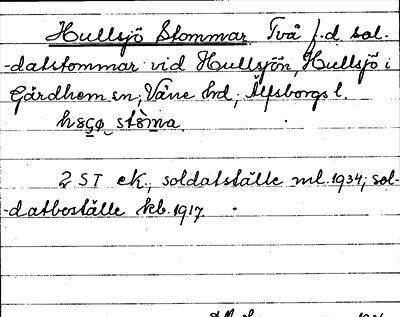 Hullsjö Stommar Två f.d sol-
-datstommar vid Hullsjön, Hullsjö i
Gärdhem sn, Väne hd, Älfsborgs l.
2 ST ek., soldatställe ml. 1934; sol-
-datboställe kb. 1917.